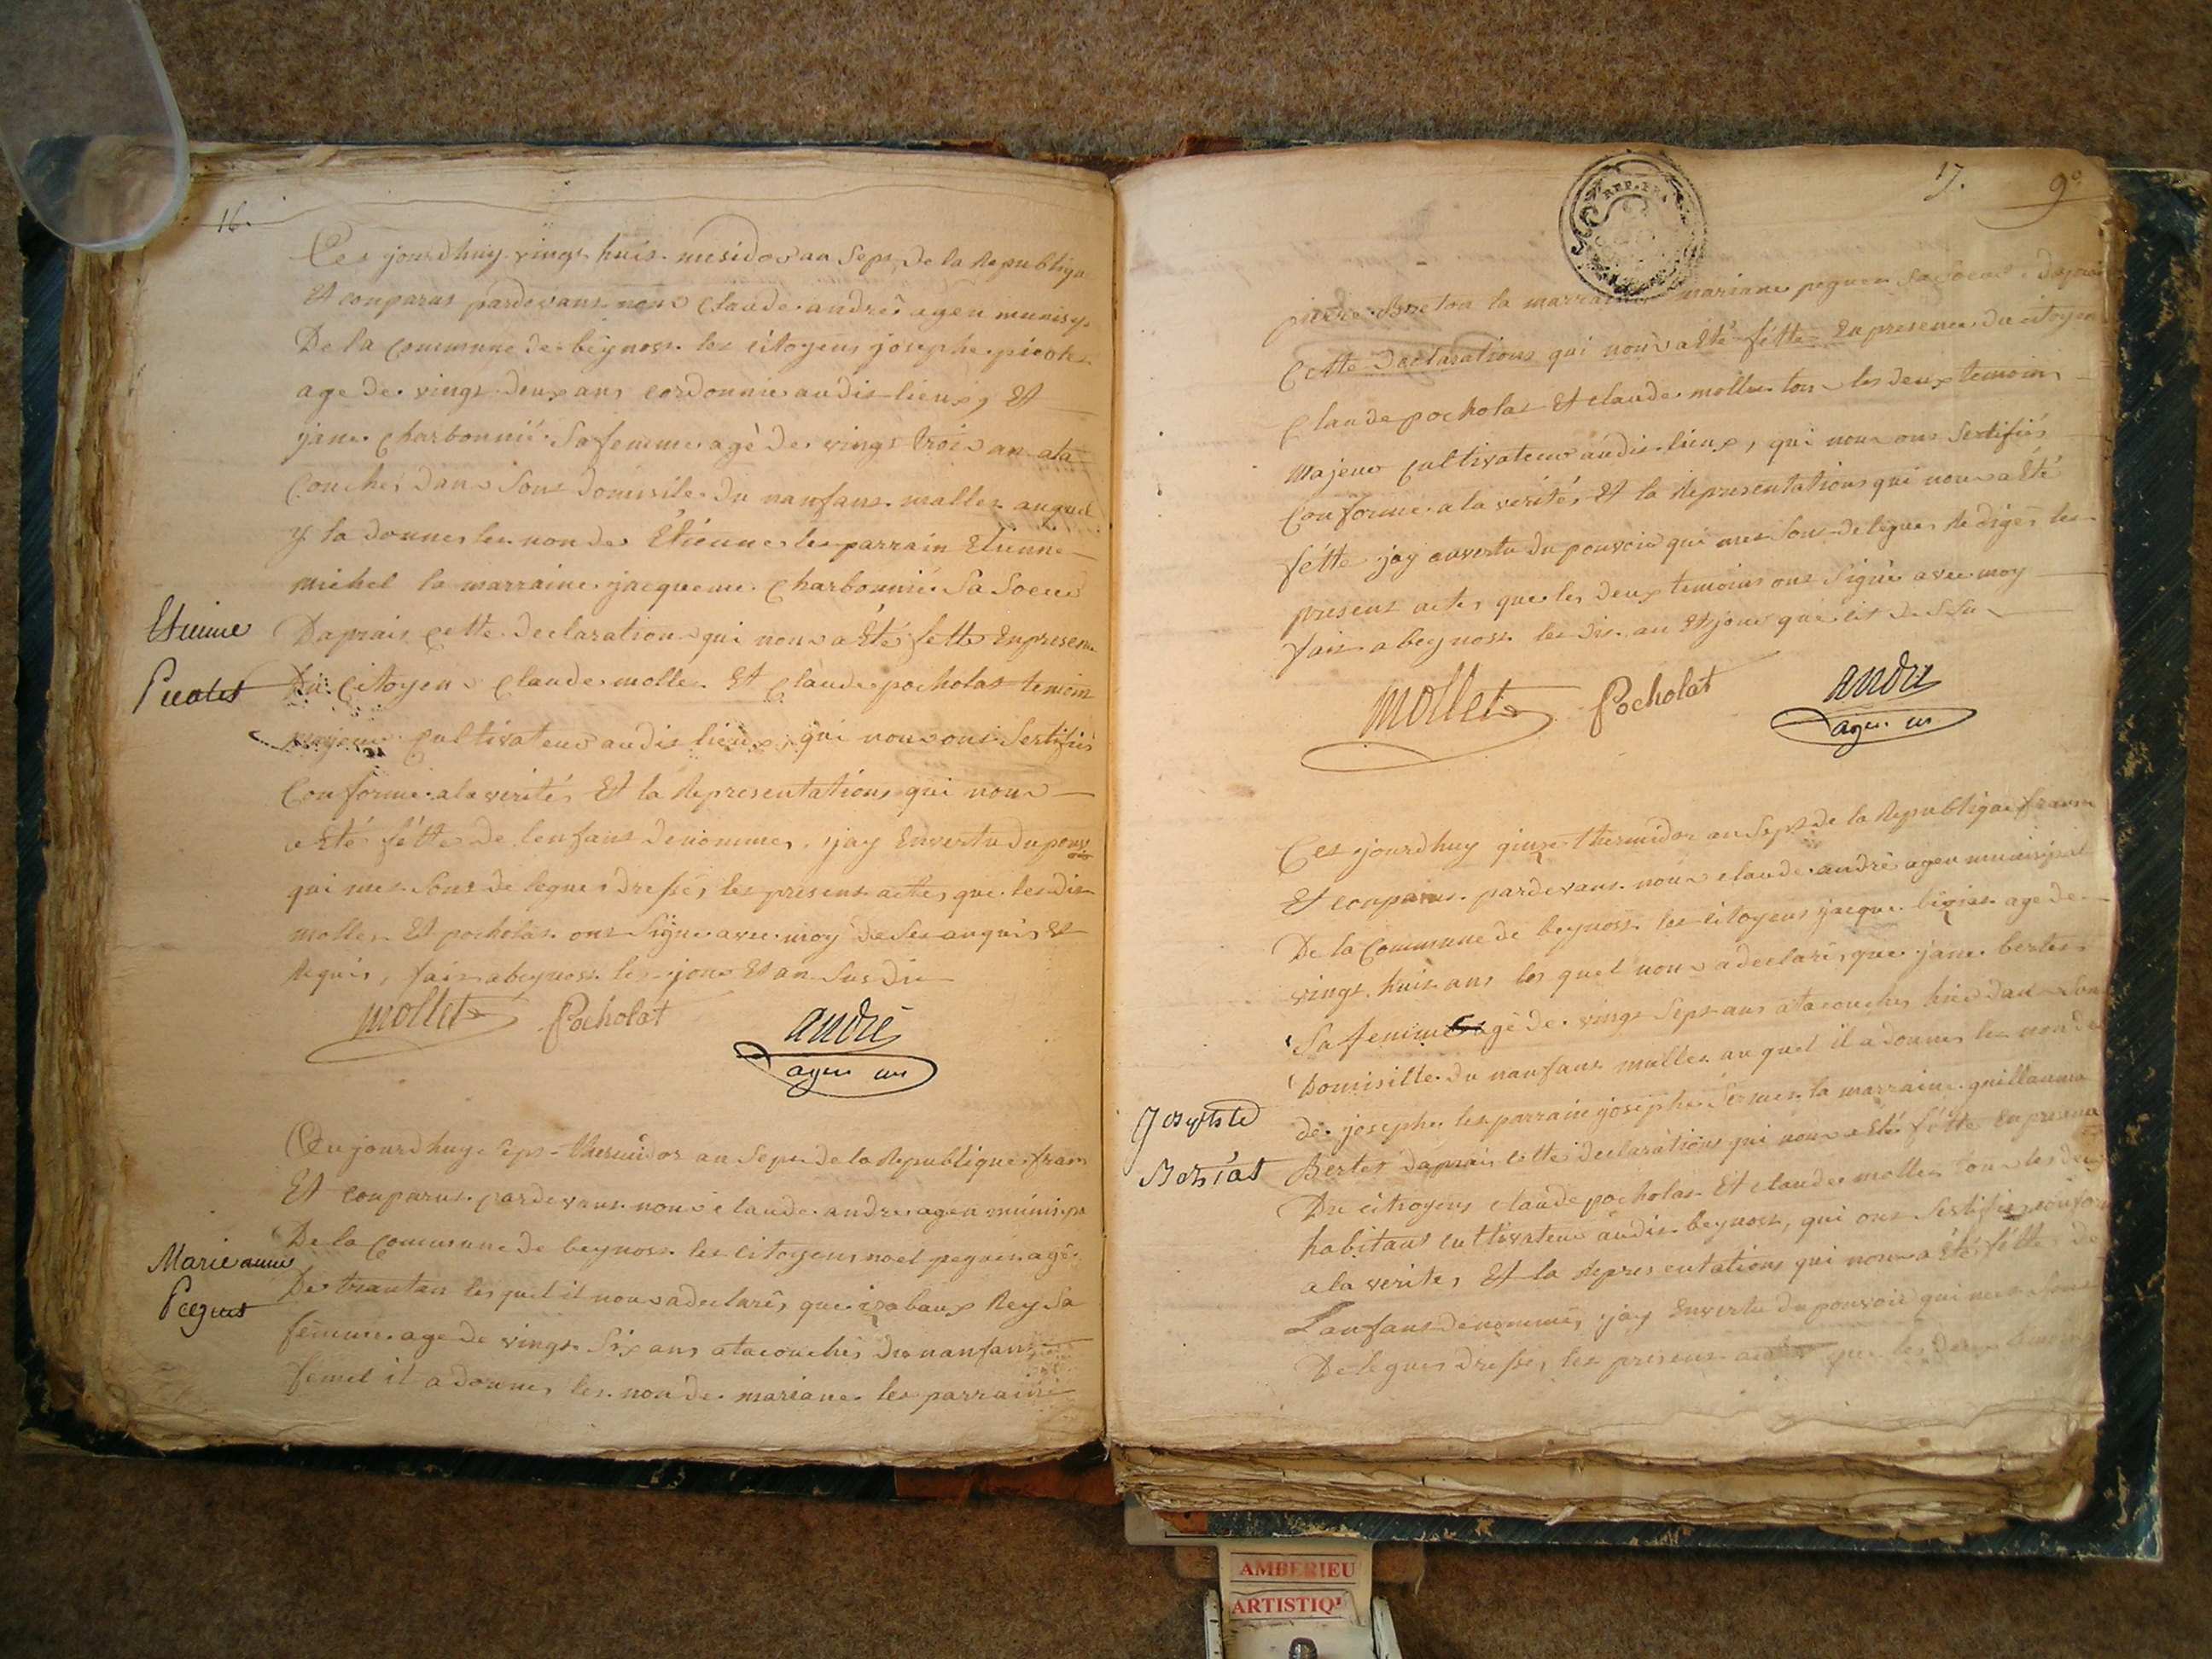 16.
Cet jourdhuy vingt huit mesidor an sept de la Republiqu
Et conparut pardevant nous Claude andré agen munisy
De la Commune de beynost les citoyens josephe picotet
age de vingt deux ans cordonnie audit lieux, Et
jane Charbonnié sa femme agé de vingt trois an ata
Couches dans sont domisile du nanfant malle auquel
y la donnes le non de Étienne les parrain Etienne
mihel la marraine jacqueme Charbonnié sa soeur
Etienne
Picotet
Daprais Cette declaration qui nous a Été fette En presen
Du Citoyen Claude mollet Et Claude pocholat temoin
majeur Cultivateur audit lieux, qui nous ont sertifiés
Conforme a la verités Et la Representations qui nous
a Eté fétte de lenfant denommes, jay En vertu du pouv
oir
qui met sont delegues dresses les present actes que ledit
mollet Et pocholat ont signe avec moy de se anquis Et
Requis, fait a beynost les jour Et an susdit
Mollet Pocholat andré
agen m
Aujourdhuy sept thermidor an sept de la Republique fran
Et conparut pardevant nous claude andre agen munisipa
De la Commune de beynost les citoyens noel peguet agé
Marie anne
Peguet
De trantan les quel il nous a declarés que izabaux Rey sa
femme age de vingt six ans atacouchés du nanfant
femel il a donnes les non de mariane les parrain
17. 9e
REP. FRA.
pierre Breton la marraine mariane peguet sa soeur Daprai
Cette declarations qui nous a Eté fétte En presence du citoyen
Claude pocholat Et claude mollet tous les deux temoins
Majeur Cultivateur audit lieux, qui nous ont sertifiés
Conforme a la verités Et la Representations qui nous a Eté
fétte jay anvertu du pouvoir qui met sont delegues Rediges les
present actes que les deux temoins ont signé avec moy
fait a beynost les dit an Et jour que Dessu
Mollet Pocholat andre
agen m
Cet jourdhuy quinze thermidor an sept de la Republique franse
Et conparut pardevant nous claude andré agen munisipal
De la Commune de beynost les citoyens jacque bezias age de
vingt huit ans les quel nous a declarés que jane bertet
Sa femme agé de vingt sept ans atacouches hier dans son
Domisille du nanfant malle au quel il a donnes les non de
de josephe les parrain josephe la marraine guillauma
Josephte
Bezias
Bertet daprais cette declarations qui nous a Été fétte En presence
Du citoyens claude pocholat Et claude mollet tous les deux
habitant cultivateur audit beynost, qui ont sertifies conform
a la verites Et la Representations qui nous a Été fétte de
Lanfant denommes, jay Envertu du pouvoir qui met sont
Delegues dresses les present actes que les deux temoins
AMBERIEU
ARTISTIQ'